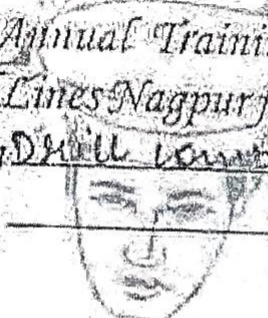 Annual Traini
Lines Nagpur f
Drill